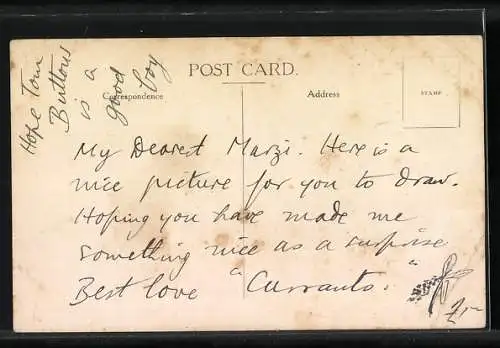 Hope Tom
Buttons
is a
good
boy
POST CARD.
Correspondence
Address
STAMP
My Dearest Marzi. Here is a
nice picture for you to draw.
Hoping you have made me
something nice as a surprise
Best love "Currants."